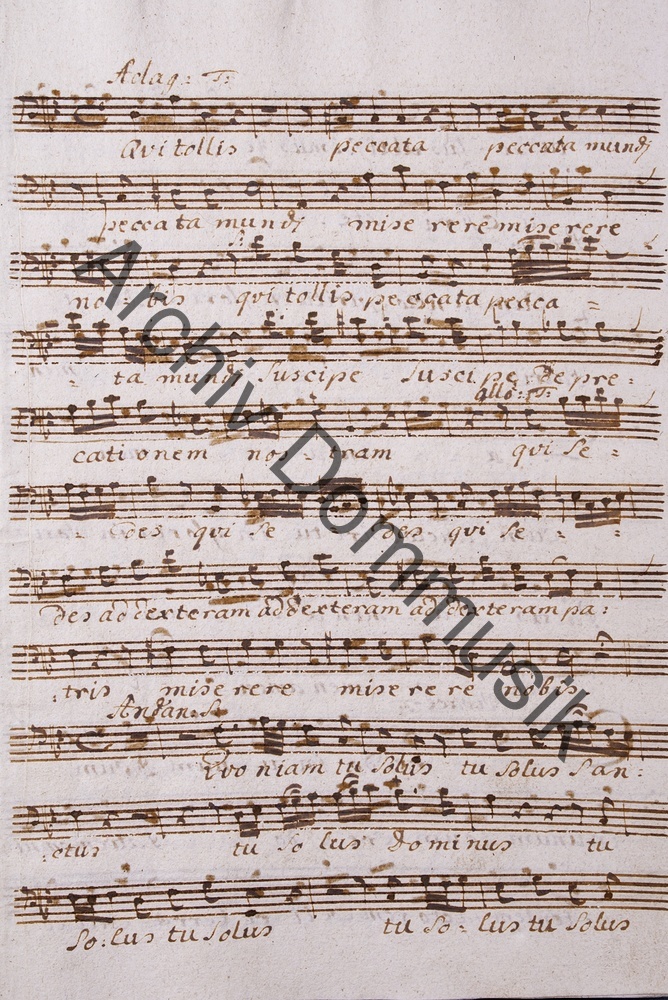 Adag: T:
Qvi tollis peccata peccata mundj
peccata mundj mise rere mise rere
S:
no - bis qvi tollis peccata pecca -
- ta mundj suscipe suscipe de pre -
allo: T:
cati onem nos - tram qvi se -
- des qvi se - des qvi se -
des ad dexteram ad dexteram ad dexteram pa:
:tris mise rere mise re re nobis
Andan: S:
Qvo niam tu solus tu solus san-
ctus tu so lus dominus tu
so:lus tu solus tu so - lus tu solus
Archiv Dommusik